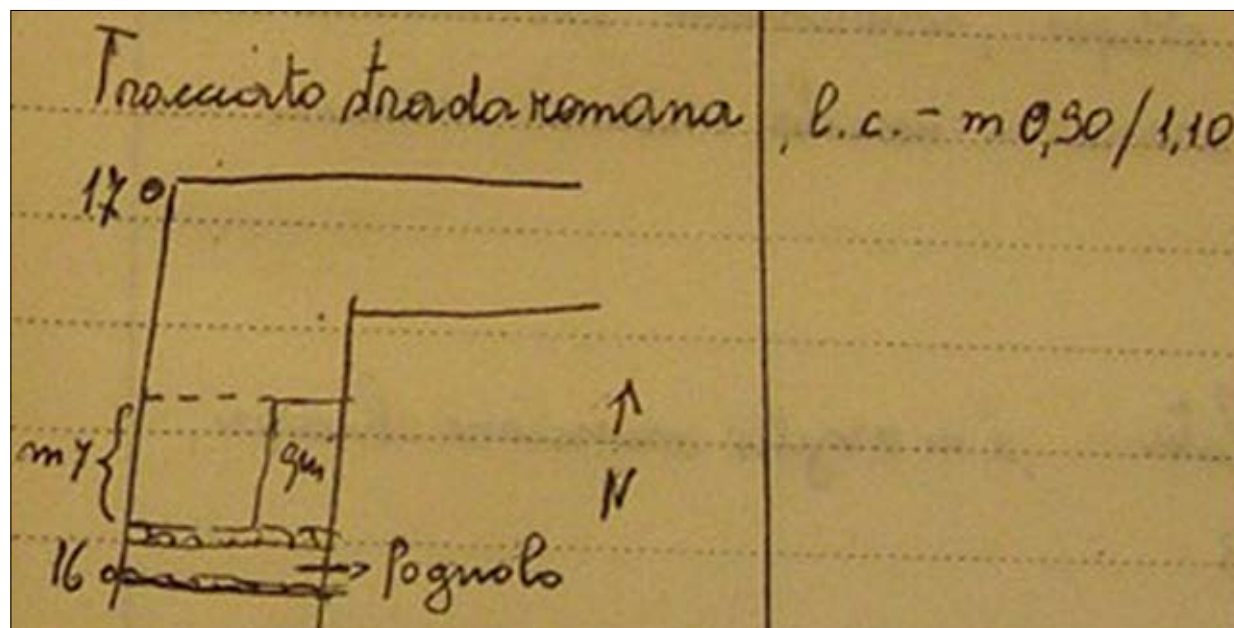 Tracciato strada romana, l.c. - m 0,90/1,10
17
m 7
16
→ Pognolo
N